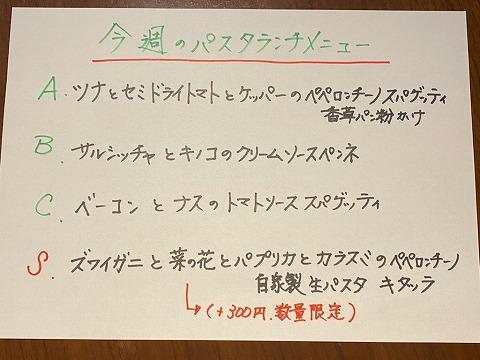 今週のパスタランチメニュー
A. ツナとセミドライトマトとケッパーのペペロンチーノスパゲッティ
香草パン粉かけ
B. サルシッチャとキノコのクリームソースペンネ
C. ベーコンとナスのトマトソーススパゲッティ
S. ズワイガニと菜の花とパプリカとカラスミのペペロンチーノ
自家製生パスタ キタッラ
(+300円.数量限定)